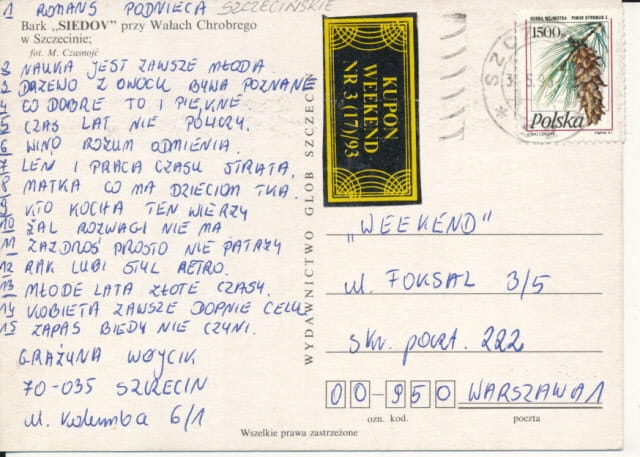 1 ROMANS PODNIECA SZCZECIŃSKIE
Bark „SIEDOV" przy Wałach Chrobrego
w Szczecinie;
fot. M. Czasnojć
2 NAUKA JEST ZAWSZE MŁODA
3 DRZEWO Z OWOCU BYWA POZNANE
4 CO DOBRE TO I PIĘKNE
5 CZAS LAT NIE POLICZY.
6 WINO ROZUM ODMIENIA.
7 LEN I PRACA CZASU STRATA.
8 MATKA CO MA DZIECIOM TKA.
9 KTO KOCHA TEN WIERZY
10 ŻAL ROZWAGI NIE MA
11 ZAZDROŚĆ PROSTO NIE PATRZY
12 RAK LUBI STYL RETRO.
13 MŁODE LATA ZŁOTE CZASY.
14 KOBIETA ZAWSZE DOPNIE CELU
15 ZAPAS BIEDY NIE CZYNI.
GRAŻYNA WÓJCIK
70-035 SZCZECIN
ul. Kolumba 6/1
WYDAWNICTWO GLOB SZCZEC
KUPON
WEEKEND
NR 3 (17)/93
1500 zł
Polska
„WEEKEND"
ul. FOKSAL 3/5
skr. poczt. 222
00-950 WARSZAWA 1
ozn. kod. poczta
Wszelkie prawa zastrzeżone